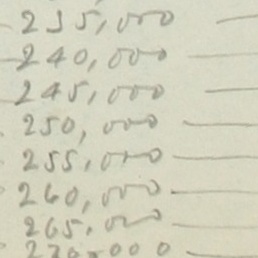 235,000
240,000
245,000
250,000
255,000
260,000
265,000
270,000